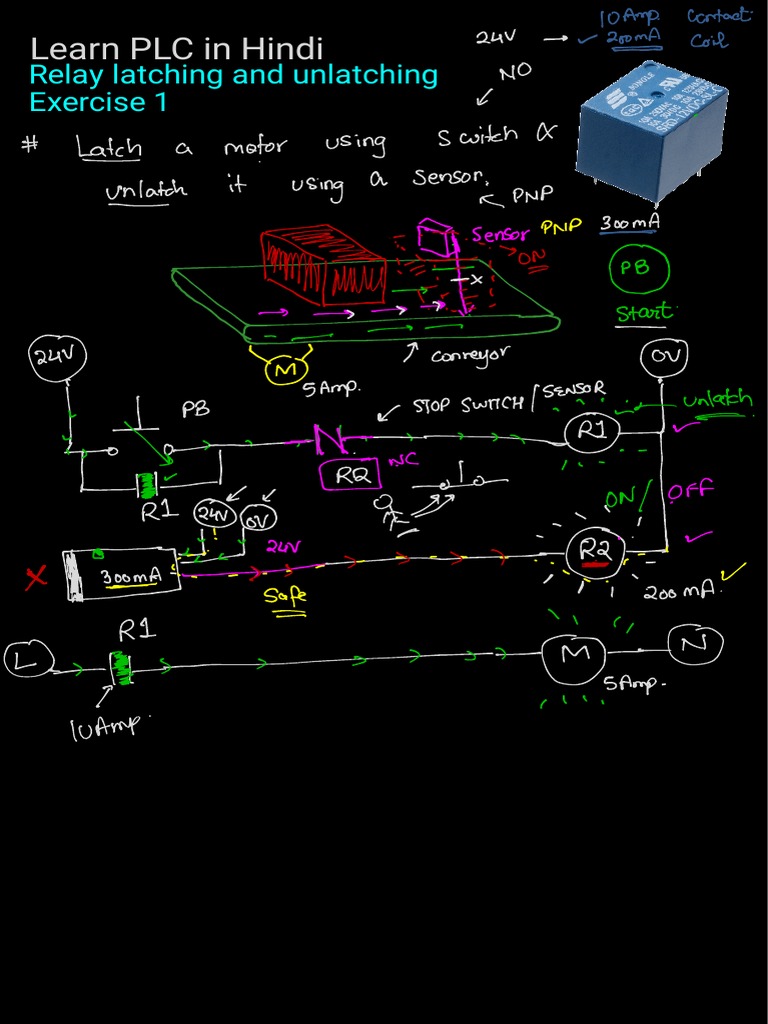 10Amp. Contact
24V → ✓ 200mA Coil
Learn PLC in Hindi
Relay latching and unlatching
Exercise 1
NO
# Latch a motor using Switch &
unlatch it using a sensor.
PNP
SONGLE
300mA
Sensor PNP
ON
x
PB
Start
M
conveyor
5Amp.
24V
0V
PB
STOP SWITCH / SENSOR
unlatch
N
R1
R2 NC
R1
ON / OFF
24V 0V
24V
R2
X
300mA
Safe
200mA.
R1
L
M
N
5Amp.
10Amp.